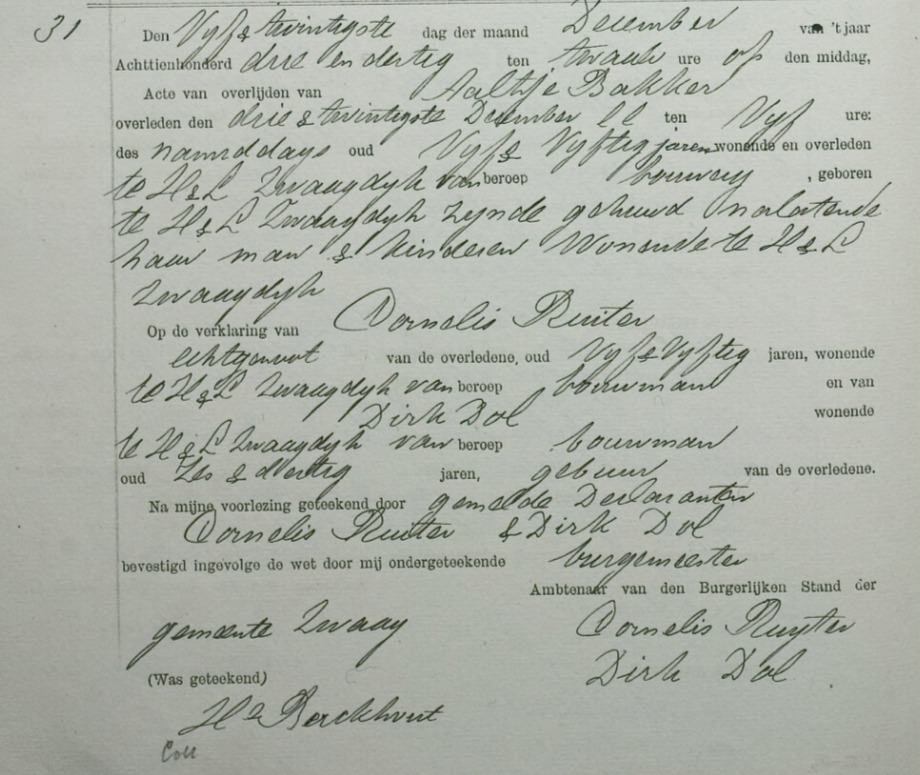 31
Den Vyf & twintigste dag der maand December van 't jaar
Achttienhonderd drie en dertig ten twaalf ure op den middag,
Acte van overlijden van Aaltje Bakker
overleden den drie & twintigste December ll ten Vyf ure:
des namiddags oud Vyf & Vyftig jaren wonende en overleden
te H & L Zwaagdyk van beroep bouwery, geboren
te H & L Zwaagdyk zynde gehuwd nalatende
haar man & kinderen Wonende te H & L
Zwaagdyk
Op de verklaring van Cornelis Ruiter
echtgenoot van de overledene, oud Vyf & Vyftig jaren, wonende
te H & L Zwaagdyk van beroep bouwman en van
Dirk Dol wonende
te H & L Zwaagdyk van beroep bouwman
oud Zes & dertig jaren, gebuur van de overledene.
Na mijne voorlezing geteekend door gemelde Declaranten
Cornelis Ruiter & Dirk Dol
bevestigd ingevolge de wet door mij ondergeteekende burgemeester
Ambtenaar van den Burgerlijken Stand der
gemeente Zwaag Cornelis Ruyter
(Was geteekend) Dirk Dol
Hk Berckhout
Coll